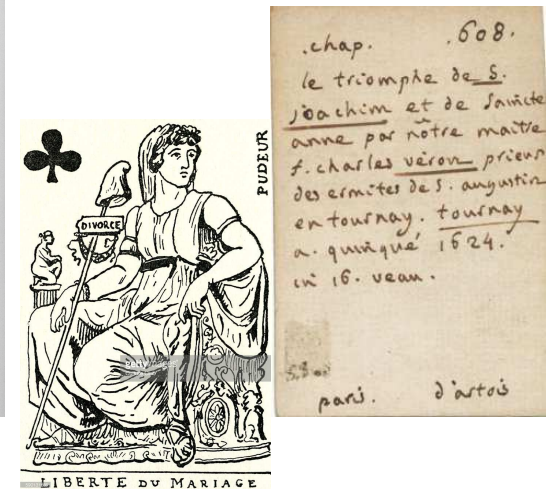 PUDEUR
DIVORCE
LIBERTE DU MARIAGE
.chap. .608.
le triomphe de S.
joachim et de saincte
anne par nôtre maitre
f. charles véron prieur
des ermites de S. augustin
en tournay. tournay
a. quinqué 1624.
in 16. veau.
paris. d'artois